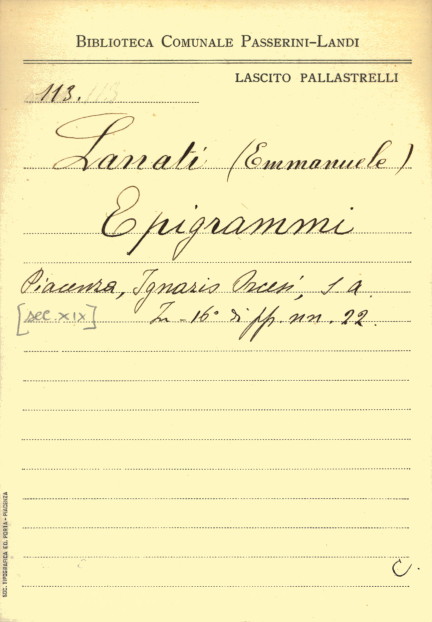 BIBLIOTECA COMUNALE PASSERINI-LANDI
LASCITO PALLASTRELLI
113.
Lanati (Emmanuele)
Epigrammi
Piacenza, Ignazio Orcesi, s. a.
[sec. XIX] In-16° di pp. nn. 22.
C.
SOC. TIPOGRAFICA ED. PORTA-PIACENZA